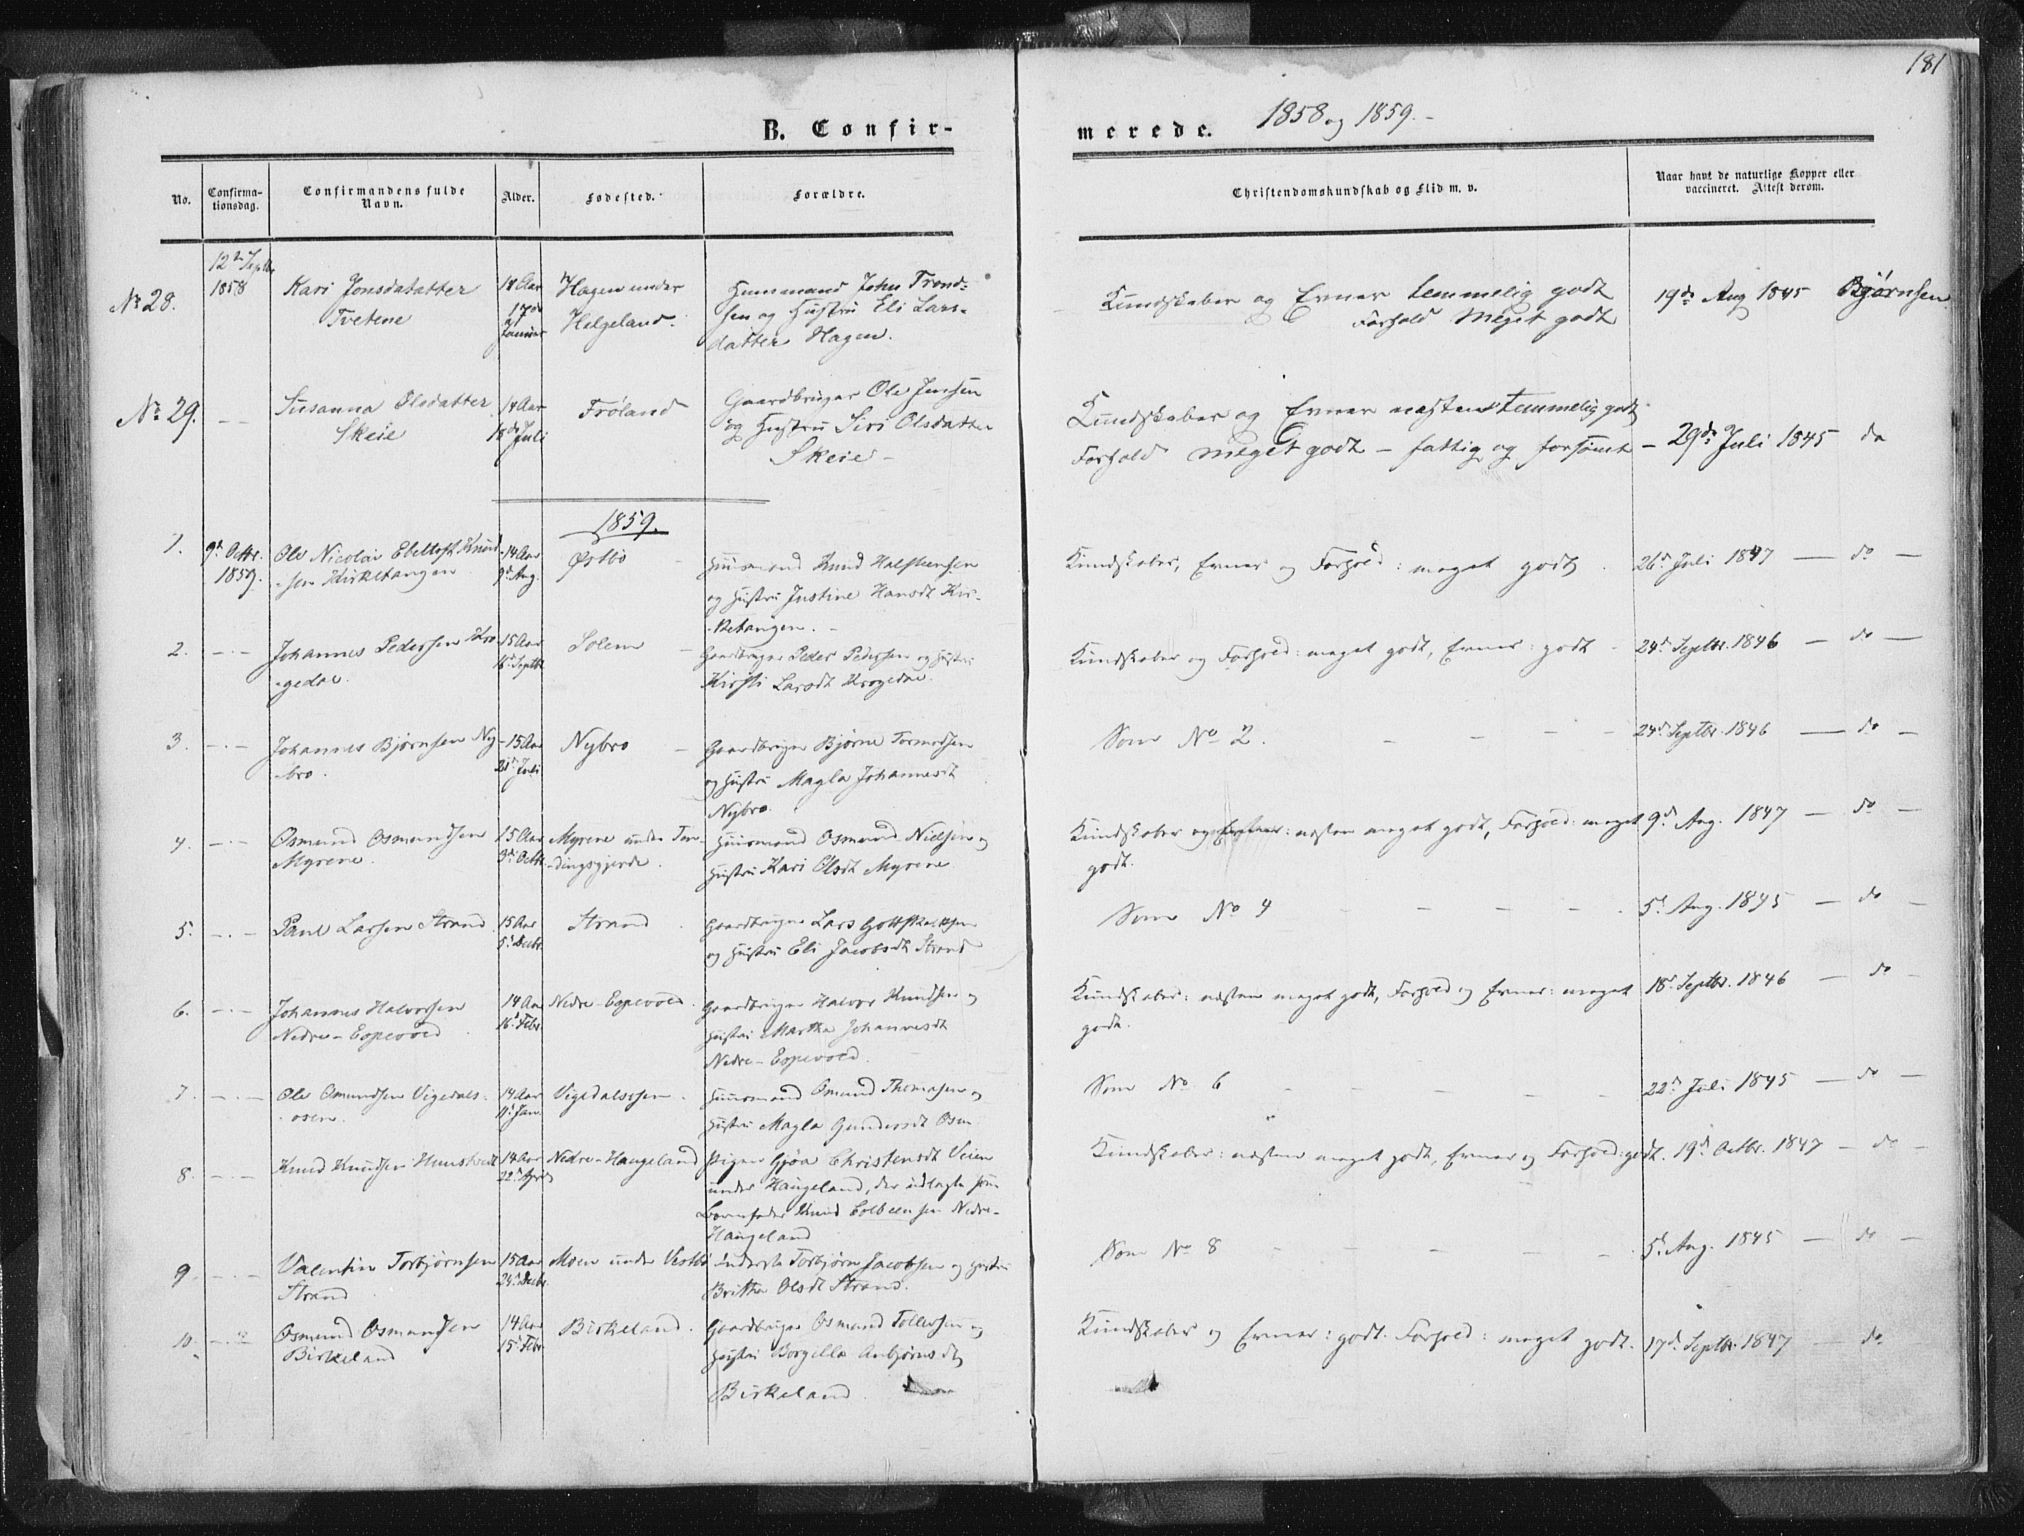 181
B. Confir- merede. 1858 og 1859.-
No. Confirma- tionsdag. Confirmandens fulde Navn. Alder. Fødested. Forældre. Christendomskundskab og Flid m. v. Naar havt de naturlige Kopper eller vaccineret. Attest derom.
12te Septbr
No 28. 1858 Kari Jonsdatatter 18 Aar Hagen under Huusmand John Trond- Kundskaber og Evner temmelig godt 19de Aug 1845 Bjørnsen
Tvetene 17de Januar Helgeland. sen og Hustru Eli Lars- Forhold Meget godt
datter Hagen.
No 29. - - Susanna Olsdatter 14 Aar Frøland Gaardbruger Ole Jensen Kundskaber og Evner næsten temmelig godt
Skeie 18de Juli og Hustru Siri Olsdatter Forhold meget godt - fattig og forsømt - 29de Juli 1845 do
Skeie -
1859.
1. 9d Octbr. Ole Nicolai Ebeltoft Knud- 14 Aar Østbø Huusmand Knud Halsteensen Kundskaber, Evner og Forhold: meget godt. 26d Juli 1847 - do -
1859. -sen Kirketangen 9d Aug. og Hustru Justine Hansdt Kir-
-ketangen. -
2. - - Johannes Pedersen Kro- 15 Aar Solem Gaardbruger Peder Pedersen og Hustru Kundskaber og Forhold: meget godt, Evner: godt - 24d Septbr. 1846 - do -
-gedal. 16d Septbr Kirsti Larsdt Krogedal.
3. - - Johannes Bjørnsen Ny- 15 Aar Nybro Gaardbruger Bjørne Tormodsen Som No 2. - - - - 24d Septbr. 1846 - do -
-bro. 21d Juli og Hustru Magla Johannesdt
Nybro.
4. - - Osmund Osmundsen 15 Aar Myrene under Tun- Huusmand Osmund Nielsen og Kundskaber og Evner: næsten meget godt, Forhold: meget 9d Aug. 1847 - do -
Myrene. 3d Octbr -dingsgjerde. Hustru Kari Olsdt Myrene godt.
5. - - Paul Larsen Strand 15 Aar Strand Gaardbruger Lars Gottskalksen Som No 4 - - - - 5d Aug. 1845 - do -
5d Decbr. og Hustru Eli Jacobsdt Strand
6. - - Johannes Halvorsen 14 Aar Nedre-Espevold. Gaardbruger Halvor Knudsen og Kundskaber: næsten meget godt, Forhold og Evner: meget 18d Septbr. 1846 - do -
Nedre-Espevold 16d Febr. Hustru Martha Johannesdt godt.
Nedre-Espevold.
7. - - Ole Omundsen Vigedals- 14 Aar Vigedalsosen. Huusmand Omund Thomasen og Som No 6 - - - - 22d Juli 1845 - do -
-osen. 11d Jan. Hustru Magla Gundersdt Osen.
8. - - Knud Knudsen Hunstvedt 14 Aar Nedre-Haugeland Pigen Gjøa Christensdt Veien Kundskaber: næsten meget godt, Evner og Forhold: godt. 19d Octbr. 1847 - do -
22d April under Haugeland, der udlagte som
Barnefader Knud Colbeensen Nedre-
Haugeland
9. - - Valentin Torbjørnsen 15 Aar Moen under Vestbø Inderste Torbjørn Jacobsen og Hustru Som No 8 - - - - 5d Aug. 1845 - do -
Strand 24d Decbr. Britha Olsdt Strand.
10. - - Osmund Osmundsen 14 Aar Birkeland. Gaardbruger Osmund Tollefsen og Kundskaber og Evner: godt. Forhold: meget godt. 17d Septbr. 1847 - do
Birkeland 15d Febr. Hustru Borgilla Anbjørnsdt
Birkeland.